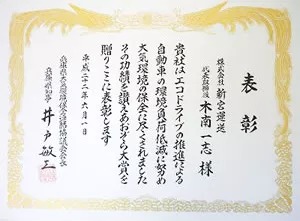 表彰
株式会社 新宮運送
代表取締役 木南一志 様
貴社はエコドライブの推進による
自動車の環境負荷低減に努め
大気環境の保全に尽くされました
その功績を讃えあおぞら大賞を
贈りここに表彰します
平成二十二年六月一日
兵庫県大気環境保全連絡協議会会長
兵庫県知事 井戸敏三